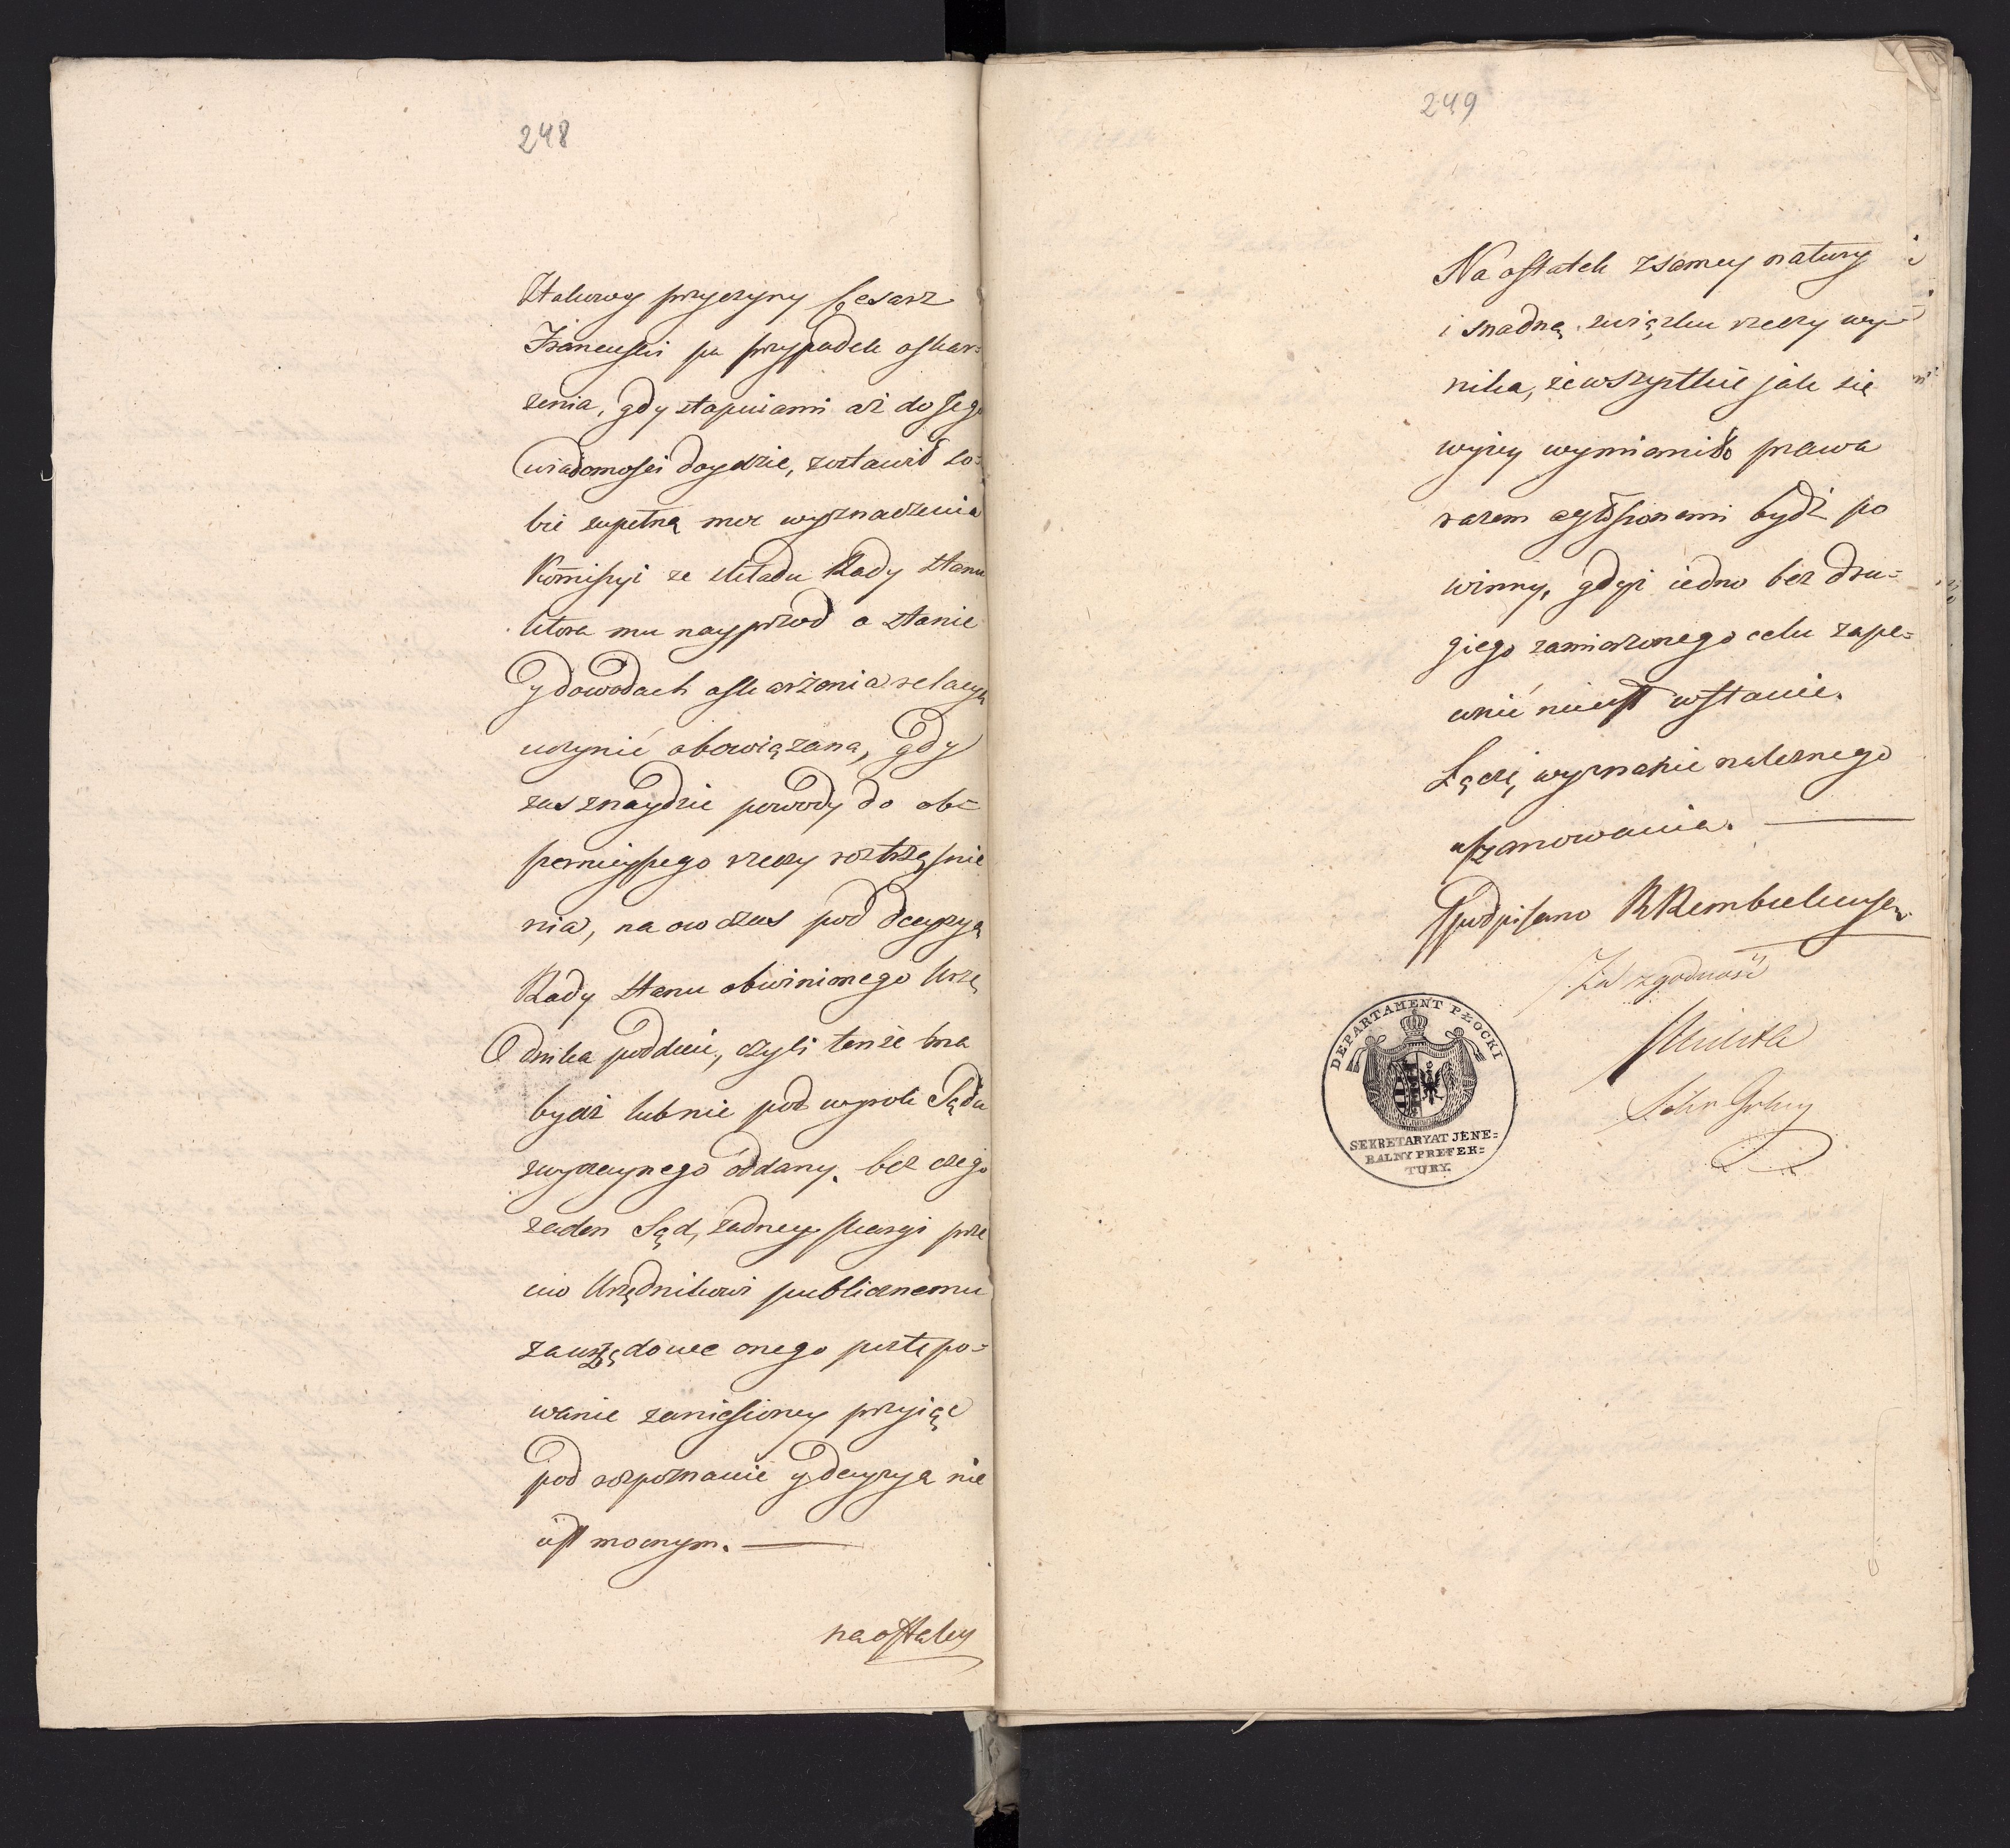 248
Ztakowey przyczyny Cesarz
Francuski na przypadek oskar=
żenia, gdy stopniami aż do Jego
wiadomości doydzie, zostawił so=
bie zupełną moc wyznaczenia
Kom̄isyi ze składu Rady stanu
która mu nayprzod o stanie
y dowodach oskarżenia relacyą
uczynić obowiązana, gdy
zas znaydzie powody do ob=
szernieyszego rzeczy roztrząśnie
nia, na ow czas pod decyzyą
Rady stanu obwinionego Urzę
dnika poddaie, czyli tenże ma
bydź lub nie pod wyrok Sądu
zwyczaynego oddany. bez czego
żaden Sąd, żadney skargi prze
ciw Urzędnikowi publicznemu
za urzędowe onego postępo=
wanie zaniesioney przyiąć
pod rozpoznanie y decyzyą nie
iest mocnym.
na ostatek
249
Na ostatek z samey natury
i snadną związku rzeczy wy=
nika, że wszystkie jak się
wyżey wymieniło prawa
razem ogłoszonemi bydź po
winny, gdyż iedno bez dru=
giego zamierzonego celu zape=
wnić nie iest w stanie.
Łączę wyznanie należnego
uszanowania.
podpisano R Rembielinski
Za zgodność
Sekr Grlny
DEPARTAMENT PŁOCKI
SEKRETARYAT JENE=
RALNY PREFEK=
TURY.